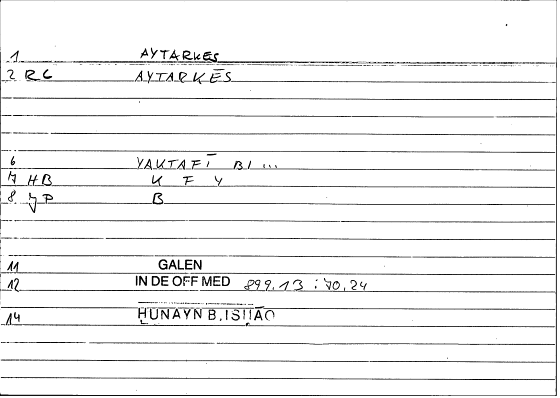 1 AYTARKES
2 RG AYTARKĒS
6 YAKTAFĪ BI ...
7 HB K F Y
8 JP B
11 GALEN
12 IN DE OFF MED 899.13 : 70,24
14 ḤUNAYN B. ISḤĀQ